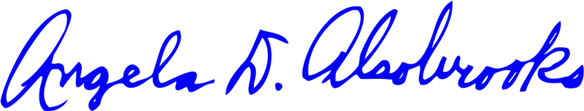 Angela D. Alsobrooks